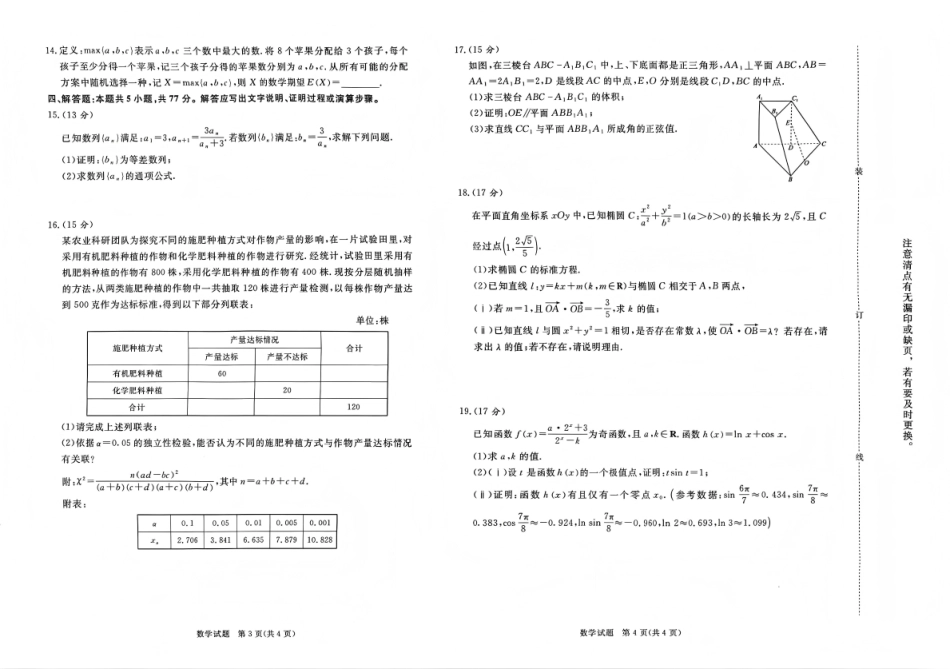 14.定义:max{a,b,c}表示a,b,c三个数中最大的数.将8个苹果分配给3个孩子,每个
孩子至少分得一个苹果,记三个孩子分得的苹果数分别为a,b,c,从所有可能的分配
方案中随机选择一种,记X=max{a,b,c},则X的数学期望E(X)=________.
四、解答题:本题共5小题,共77分。解答应写出文字说明、证明过程或演算步骤。
15.(13分)
已知数列{aₙ}满足:a₁=3,aₙ₊₁=3aₙ/(aₙ+3).若数列{bₙ}满足:bₙ=3/aₙ,求解下列问题.
(1)证明:{bₙ}为等差数列;
(2)求数列{aₙ}的通项公式.
16.(15分)
某农业科研团队为探究不同的施肥种植方式对作物产量的影响,在一片试验田里,对
采用有机肥料种植的作物和化学肥料种植的作物进行研究.经统计,试验田里采用有
机肥料种植的作物有800株,采用化学肥料种植的作物有400株.现按分层随机抽样
的方法,从两类施肥种植的作物中一共抽取120株进行产量检测,以每株作物产量达
到500克作为达标标准,得到以下部分列联表:
单位:株
施肥种植方式 产量达标情况 合计
产量达标 产量不达标
有机肥料种植 60
化学肥料种植 20
合计 120
(1)请完成上述列联表;
(2)依据α=0.05的独立性检验,能否认为不同的施肥种植方式与作物产量达标情况
有关联?
附:χ²=n(ad-bc)²/((a+b)(c+d)(a+c)(b+d)),其中n=a+b+c+d.
附表:
α 0.1 0.05 0.01 0.005 0.001
xα 2.706 3.841 6.635 7.879 10.828
数学试题 第3页(共4页)
17.(15分)
如图,在三棱台ABC-A₁B₁C₁中,上、下底面都是正三角形,AA₁⊥平面ABC,AB=
AA₁=2A₁B₁=2,D是线段AC的中点,E,O分别是线段C₁D,BC的中点.
(1)求三棱台ABC-A₁B₁C₁的体积;
(2)证明:OE//平面ABB₁A₁;
(3)求直线CC₁与平面ABB₁A₁所成角的正弦值.
A₁
C₁
B₁
E
A
D
C
O
B
18.(17分)
在平面直角坐标系xOy中,已知椭圆C:x²/a²+y²/b²=1(a>b>0)的长轴长为2√5,且C
经过点(1,2√5/5).
(1)求椭圆C的标准方程.
(2)已知直线l:y=kx+m(k,m∈R)与椭圆C相交于A,B两点,
(ⅰ)若m=1,且OA·OB=-3/5,求k的值;
(ⅱ)已知直线l与圆x²+y²=1相切,是否存在常数λ,使OA·OB=λ?若存在,请
求出λ的值;若不存在,请说明理由.
19.(17分)
已知函数f(x)=(a·2ˣ+3)/(2ˣ-k)为奇函数,且a,k∈R.函数h(x)=ln x+cos x.
(1)求a,k的值.
(2)(ⅰ)设t是函数h(x)的一个极值点,证明:tsin t=1;
(ⅱ)证明:函数h(x)有且仅有一个零点x₀.(参考数据:sin 6π/7≈0.434,sin 7π/8≈
0.383,cos 7π/8≈-0.924,ln sin 7π/8≈-0.960,ln 2≈0.693,ln 3≈1.099)
数学试题 第4页(共4页)
装
订
线
注意清点有无漏印或缺页,若有要及时更换。